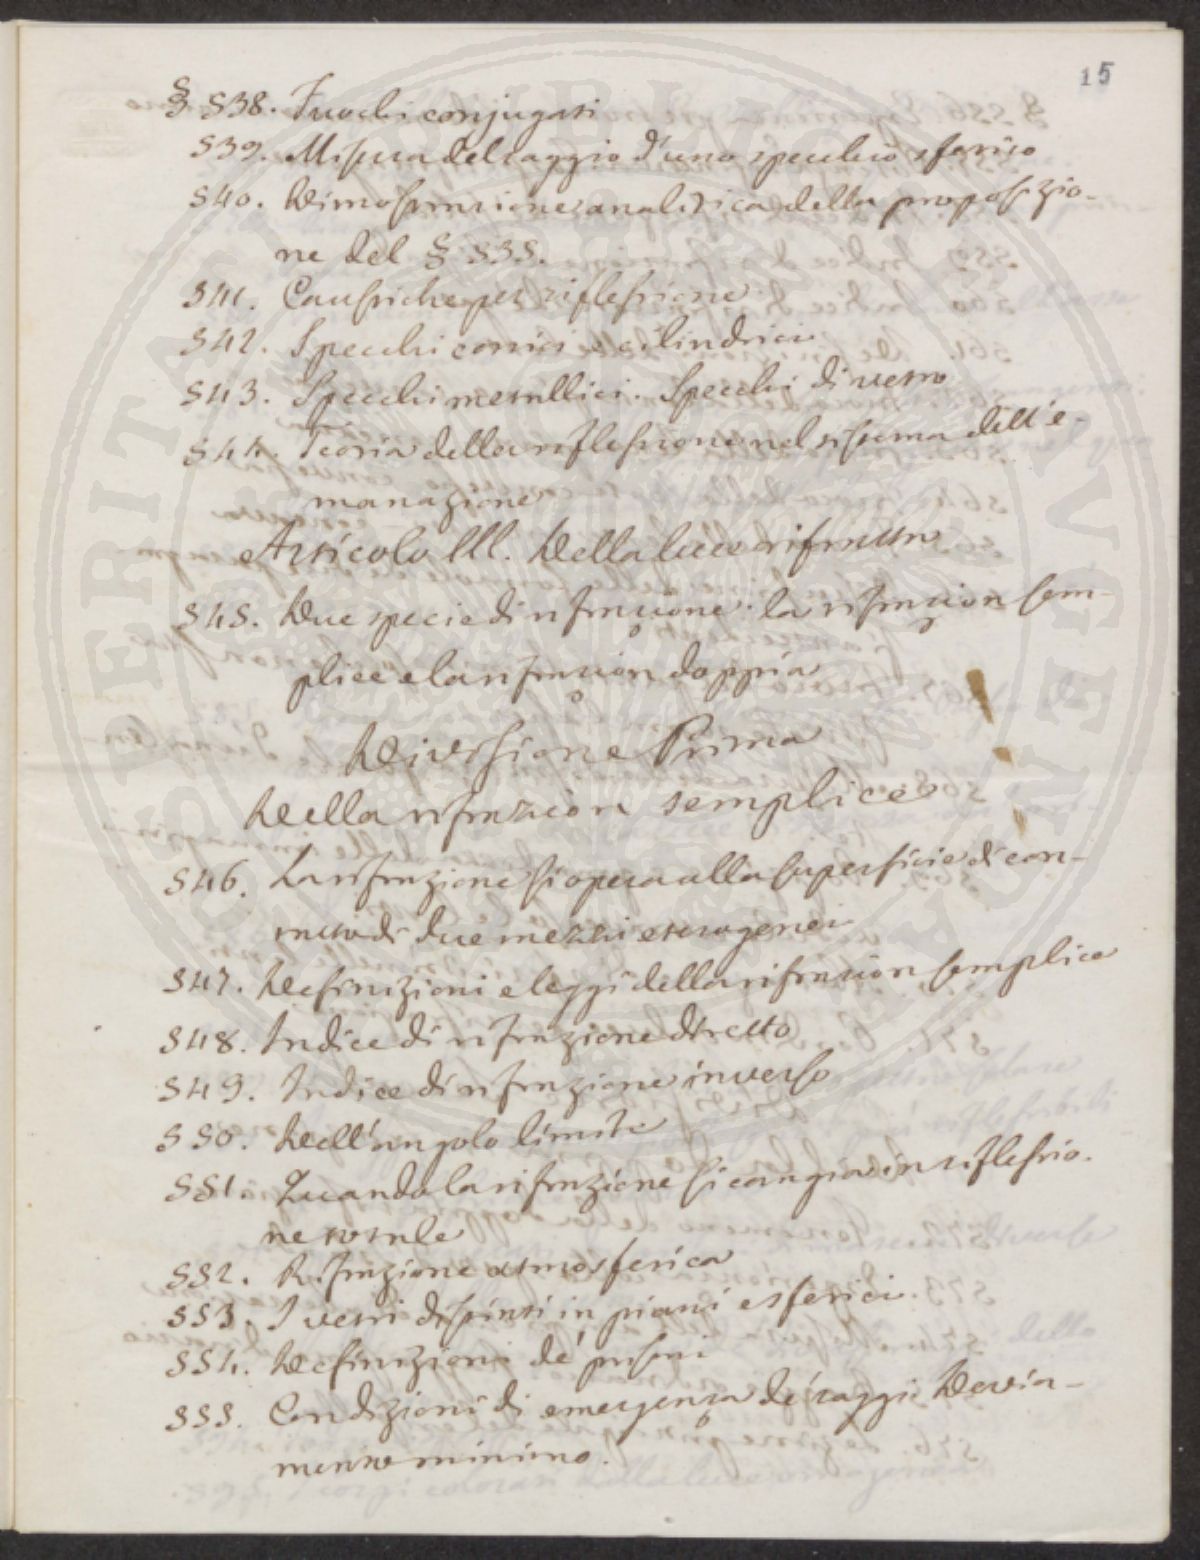 15
§ 538. Fuochi conjugati
539. Misura del raggio d'uno specchio sferico
540. Dimostrazione analitica della proposizio-
ne del § 535.
541. Caustiche per riflessione
542. Specchi conici e cilindrici
543. Specchi metallici. Specchi di vetro
544. Teoria della riflessione nel sistema dell'e-
manazione
Articolo III. Della luce rifratta
545. Due specie di rifrazione: la rifrazion sem-
plice e la rifrazion doppia
Divisione Prima
Della rifrazion semplice
546. La rifrazione si opera alla superficie di con-
tatto di due mezzi eterogenei
547. Definizioni e leggi della rifrazion semplice
548. Indice di rifrazione diretto
549. Indice di rifrazione inverso
550. Dell'angolo limite
551. Quando la rifrazione si cangia in riflessio-
ne totale
552. Rifrazione atmosferica
553. I vetri distinti in piani e sferici.
554. Definizioni de' prismi
555. Condizioni di emergenza de' raggi. Devia-
mento minimo.
SPERITAS PIELLI AVGENDAQVE